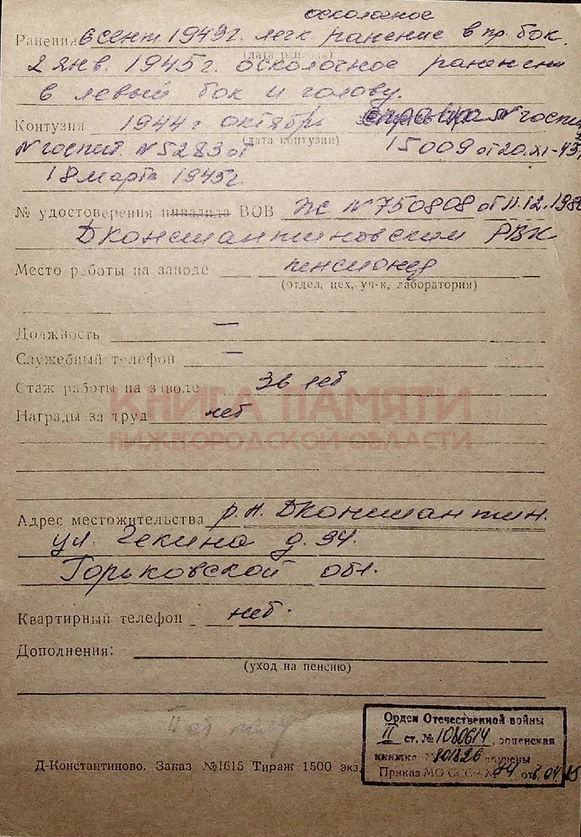 осколочное
Ранения в сент. 1943г. легк. ранение в пр. бок.
(дата р
2 янв. 1945г. осколочное ранени
в левый бок и голову.
Контузия 1944 г октябрь справка № госпит
(дата контузии)
№ госпит. N 5283 от 15009 от 20.XI-43
18 марта 1945г.
№ удостоверения инвалида ВОВ № 750808 от 11.12.198
Дконстантиновским РВК
Место работы на заводе пенсионер
(отдел, цех, уч-к, лаборатория)
Должность —
Служебный телефон —
Стаж работы на заводе 36 лет
Награды за труд нет
КНИГА ПАМЯТИ
НИЖЕГОРОДСКОЙ ОБЛАСТИ
Адрес местожительства р.п. Дконстантин.
ул. д. 94.
Горьковской обл.
Квартирный телефон нет.
Дополнения:
(уход на пенсию)
Орден Отечественной войны
II ст. № 1080614, орденская
книжка № 801826 вручены
Приказ МО СССР № от
Д-Константиново. Заказ №1615 Тираж 1500 экз.